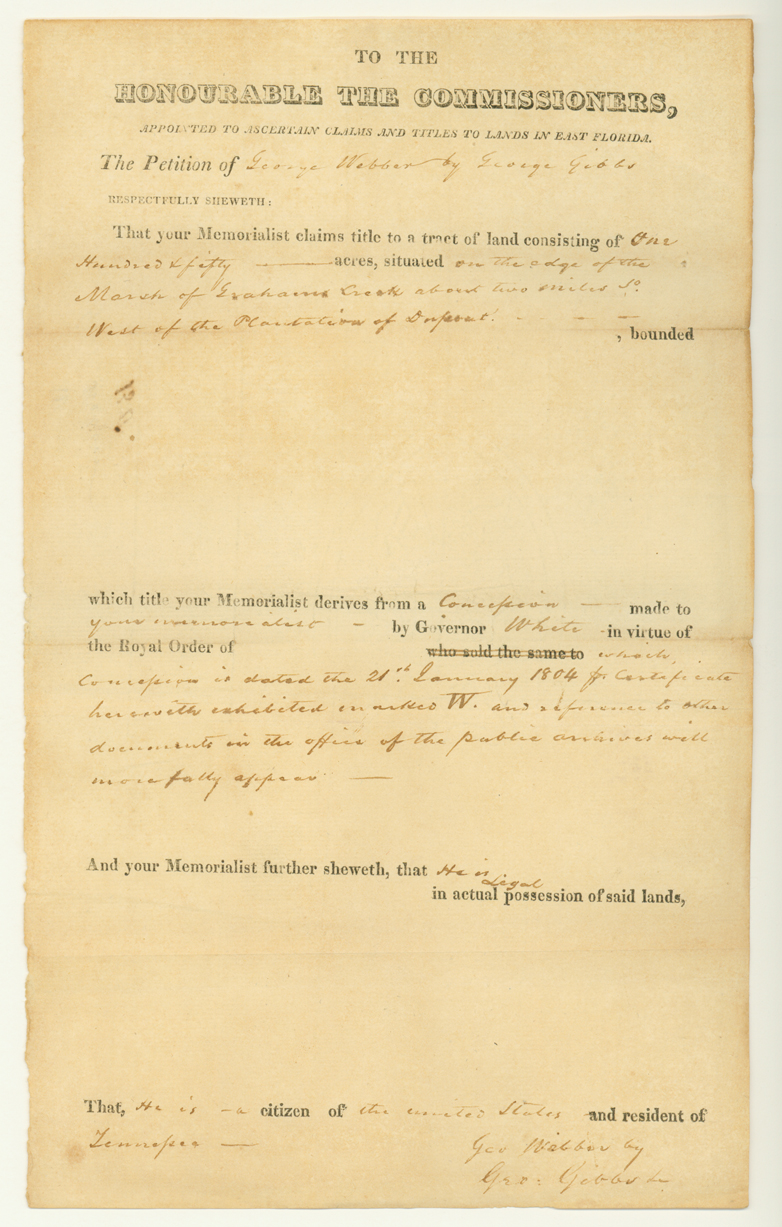 TO THE
HONOURABLE THE COMMISSIONERS,
APPOINTED TO ASCERTAIN CLAIMS AND TITLES TO LANDS IN EAST FLORIDA.
The Petition of George Webber by George Gibbs
RESPECTFULLY SHEWETH:
That your Memorialist claims title to a tract of land consisting of One
Hundred & fifty ——— acres, situated on the edge of the
Marsh of Grahams Creek about two miles So.
West of the Plantation of
, bounded
which title your Memorialist derives from a Concession — made to
your memorialist - by Governor White - in virtue of
the Royal Order of who sold the same to which
Concession is dated the 21st January 1804 Certificate
herewith exhibited marked W. and reference to other
documents in the office of the public archives will
more fully appear —
And your Memorialist further sheweth, that He is
Legal
in actual possession of said lands,
That, He is - a citizen of the united States - and resident of
Tennessee —
Geo Webber by
Geo: Gibbs